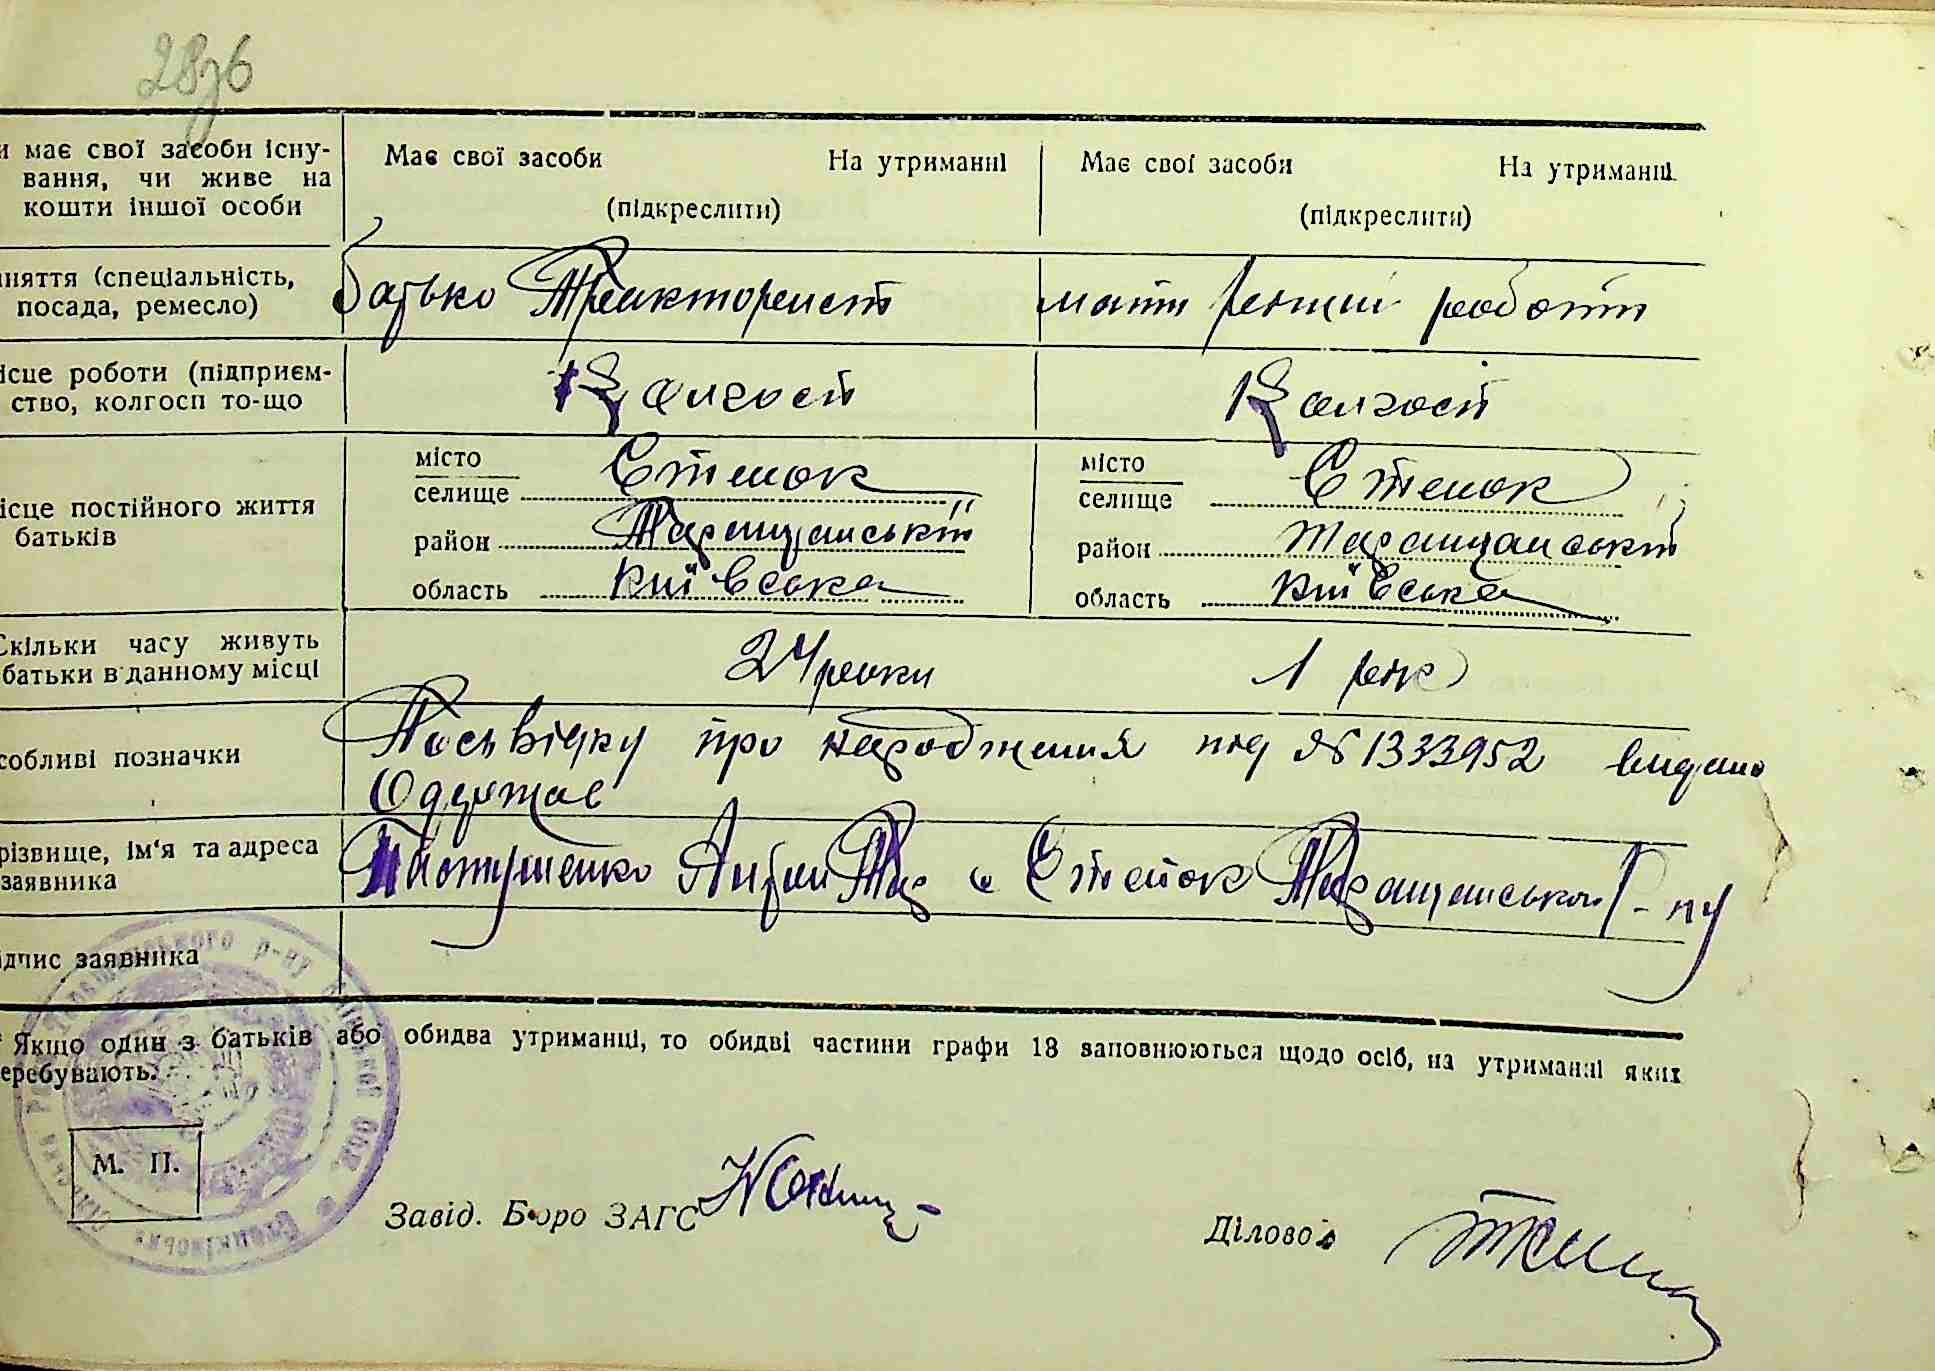 28зб
и має свої засоби існу-
вання, чи живе на
кошти іншої особи
Має свої засоби На утриманні
(підкреслити)
Має свої засоби На утриманні
(підкреслити)
няття (спеціальність,
посада, ремесло)
батько Тракторист
мати ріжний роботи
ісце роботи (підприєм-
ство, колгосп то-що
Колгосп
Колгосп
ісце постійного життя
батьків
місто
селище Степок
район Таращанський
область Київська
місто
селище Степок
район Таращанський
область Київська
Скільки часу живуть
батьки в данному місці
24 роки
1 рік
собливі позначки
Посвідку про народження під № 1333952 видано
Одержав
різвище, ім'я та адреса
заявника
с Степок Таращанського Р-ну
ідпис заявника
* Якщо один з батьків або обидва утриманці, то обидві частини графи 18 заповнюються щодо осіб, на утриманні яких
еребувають.
М. П.
Завід. Бюро ЗАГС
Діловод